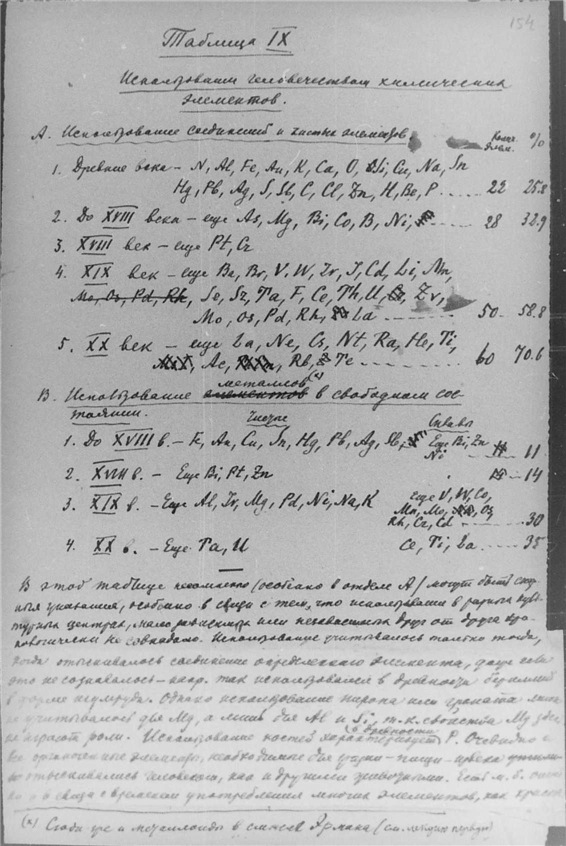 154
Таблица IX
Использование человечеством химических
элементов.
А. Использование соединений и чистых элементов. Колич. элем. %
1. Древние века – N, Al, Fe, Au, K, Ca, O, Si, Cu, Na, Sn
Hg, Pb, Ag, S, Sb, C, Cl, Zn, H, Be, P. 22 25.8
2. До XVIII века – еще As, Mg, Bi, Co, B, Ni, 28 32.9
3. XVIII век – еще Pt, Cr
4. XIX век – еще Ba, Br, V, W, Ir, J, Cd, Li, Mn,
Mo, Os, Pd, Rh, Se, Sr, Ta, F, Ce, Th, U, Zr,
Mo, Os, Pd, Rh, La 50 58.8
5. XX век – еще La, Ne, Cs, Nt, Ra, He, Ti,
Ac, Rb, Te 60 70.6
металлов (x)
В. Использование элементов в свободном сос-
тоянии. Чистые Сплавы
1. До XVIII в. – Fe, Au, Cu, Sn, Hg, Pb, Ag, Sb, Еще Bi, Zn
Ni 11 11
2. XVIII в. – Еще Bi, Pt, Zn 14
3. XIX в. – Еще Al, Ir, Mg, Pd, Ni, Na, K Еще V, W, Co,
Mn, Mo, Os,
Rh, Cr, Cd 30
4. XX в. – Еще Ta, U Ce, Ti, La 35
В этой таблице несомненно (особенно в отделе А) могут быть
указания, особенно в связи с тем, что использование в разных куль-
турных центрах, мало зависимых или независимых друг от друга хро-
нологически не совпадало. Использование учитывалось только тогда,
когда отыскивалось соединение определенного элемента, даже если
это не сознавалось – напр. так использовался в древности бериллий
в форме изумруда. Однако использование пиропа или граната
не учитывалось для Mg, а лишь для Al и Si, т.к. свойства Mg здесь
не играют роли. Использование костей характеризует P. Очевидно
в древности
все органогенные элементы, необходимые для – пищи –
отыскивались человеком, как и другими животными. Если
в связи с временем употребления многих элементов, как
(x) Сюда же и металлоиды в смысле Эрмана (см. первую)